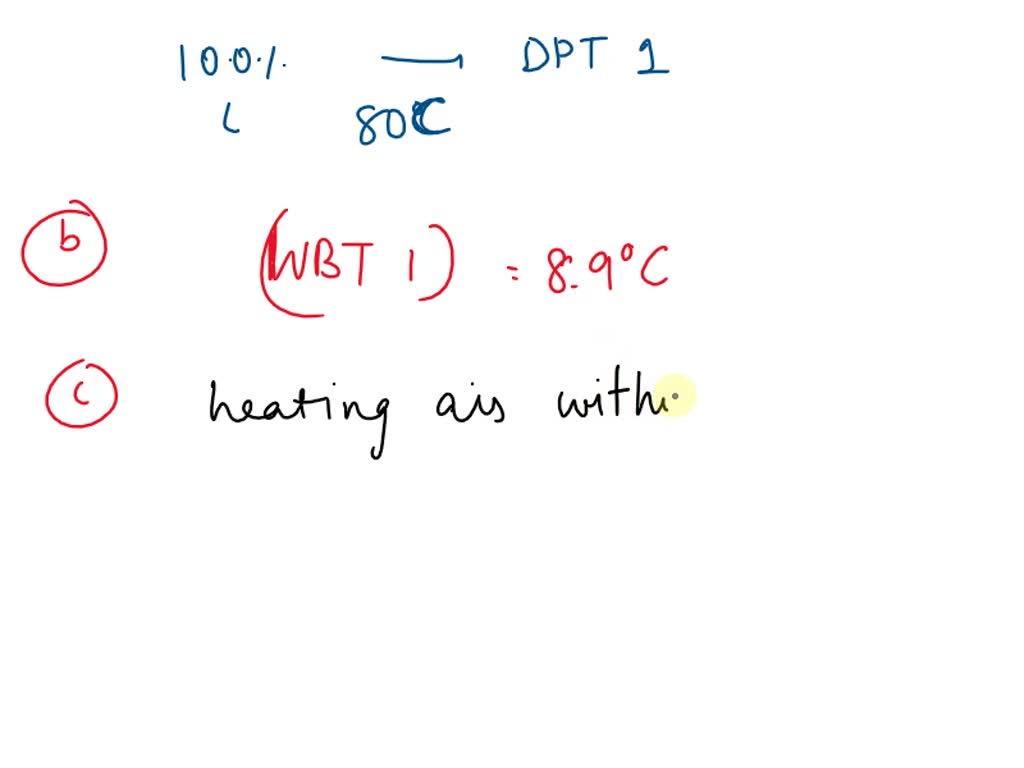 100% — DPT 1
80C
b (WBT 1) = 8.9°C
c heating air with